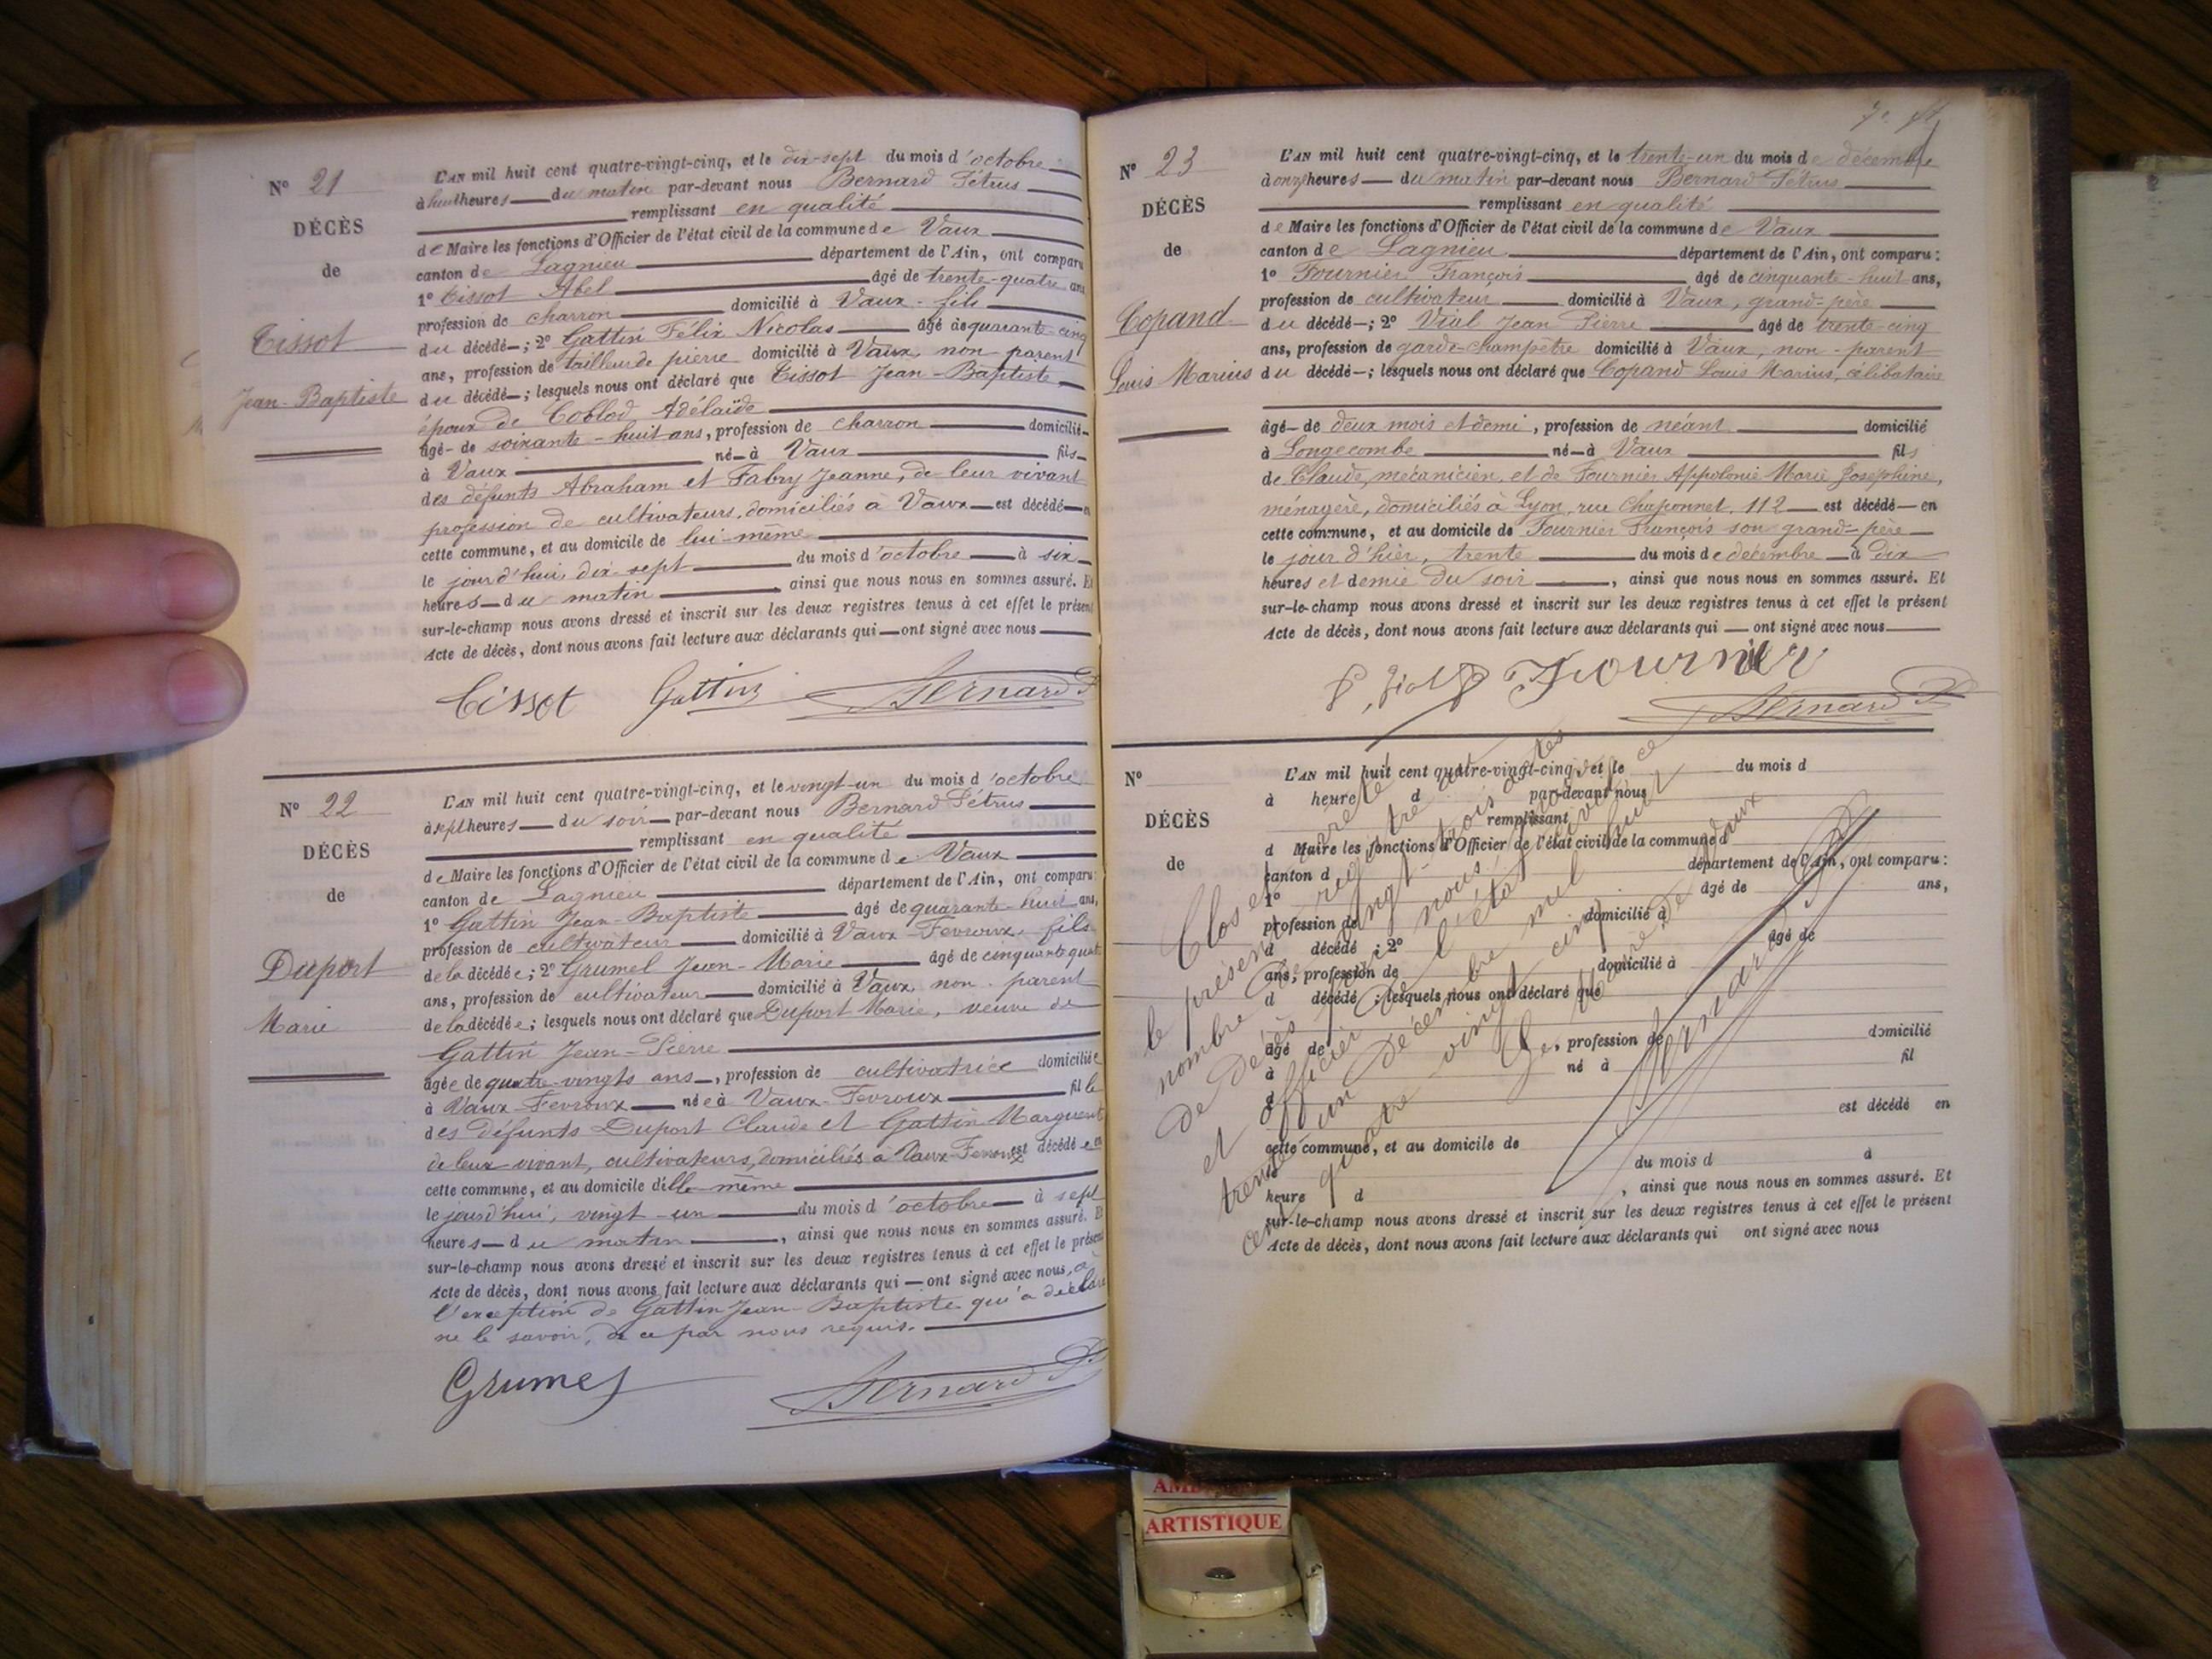 Nº 21
DÉCÈS
de
Tissot
Jean-Baptiste
L'AN mil huit cent quatre-vingt-cinq, et le dix-sept du mois d'octobre
à huit heures du matin par-devant nous Bernard Pétrus
remplissant en qualité
de Maire les fonctions d'Officier de l'état civil de la commune de Vaux
canton de Lagnieu département de l'Ain, ont comparu
1º Tissot Abel âgé de trente-quatre ans
profession de charron domicilié à Vaux - fils
du décédé ; 2º Gattin Félix Nicolas âgé de quarante-cinq
ans, profession de tailleur de pierre domicilié à Vaux, non parent
du décédé ; lesquels nous ont déclaré que Tissot Jean-Baptiste
époux de Coblod Adélaïde
âgé de soixante-huit ans, profession de charron domicilié
à Vaux né à Vaux fils
des défunts Abraham et Fabry Jeanne, de leur vivant
profession de cultivateurs, domiciliés à Vaux est décédé en
cette commune, et au domicile de lui-même
le jourd'hui dix-sept du mois d'octobre à six
heures du matin, ainsi que nous nous en sommes assuré. Et
sur-le-champ nous avons dressé et inscrit sur les deux registres tenus à cet effet le présent
Acte de décès, dont nous avons fait lecture aux déclarants qui ont signé avec nous
Tissot Gattin Bernard P
Nº 22
DÉCÈS
de
Duport
Marie
L'AN mil huit cent quatre-vingt-cinq, et le vingt-un du mois d'octobre
à sept heures du soir par-devant nous Bernard Pétrus
remplissant en qualité
de Maire les fonctions d'Officier de l'état civil de la commune de Vaux
canton de Lagnieu département de l'Ain, ont comparu :
1º Gattin Jean-Baptiste âgé de quarante-huit ans,
profession de cultivateur domicilié à Vaux-Fevroux, fils
de la décédée ; 2º Grumel Jean-Marie âgé de cinquante quat
ans, profession de cultivateur domicilié à Vaux, non-parent
de la décédée ; lesquels nous ont déclaré que Duport Marie, veuve de
Gattin Jean-Pierre
âgée de quatre-vingts ans, profession de cultivatrice domiciliée
à Vaux-Fevroux née à Vaux-Fevroux fille
des défunts Duport Claude et Gattin Marguerit
de leur vivant, cultivateurs, domiciliés à Vaux-Fevroux est décédée en
cette commune, et au domicile d'elle-même
le jourd'hui, vingt-un du mois d'octobre à sept
heures du matin, ainsi que nous nous en sommes assuré. Et
sur-le-champ nous avons dressé et inscrit sur les deux registres tenus à cet effet le présent
Acte de décès, dont nous avons fait lecture aux déclarants qui ont signé avec nous, à
l'exception de Gattin Jean-Baptiste qui a déclaré
ne le savoir, de ce par nous requis.
Grumel Bernard P
Nº 23
DÉCÈS
de
Copand
Louis Marius
L'AN mil huit cent quatre-vingt-cinq, et le trente-un du mois de décembre
à onze heures du matin par-devant nous Bernard Pétrus
remplissant en qualité
de Maire les fonctions d'Officier de l'état civil de la commune de Vaux
canton de Lagnieu département de l'Ain, ont comparu :
1º Fournier François âgé de cinquante-huit ans,
profession de cultivateur domicilié à Vaux, grand-père
du décédé ; 2º Vial Jean Pierre âgé de trente-cinq
ans, profession de garde-champêtre domicilié à Vaux, non-parent
du décédé ; lesquels nous ont déclaré que Copand Louis Marius, célibataire
âgé de deux mois et demi, profession de néant domicilié
à Longecombe né à Vaux fils
de Claude, mécanicien, et de Fournier Appolonie Marie Joséphine,
ménagère, domiciliés à Lyon, rue Chaponnet, 112 est décédé en
cette commune, et au domicile de Fournier François son grand-père
le jour d'hier, trente du mois de décembre à dix
heures et demie du soir, ainsi que nous nous en sommes assuré. Et
sur-le-champ nous avons dressé et inscrit sur les deux registres tenus à cet effet le présent
Acte de décès, dont nous avons fait lecture aux déclarants qui ont signé avec nous
Fournier
Bernard P
Nº
DÉCÈS
de
L'AN mil huit cent quatre-vingt-cinq, et le du mois d
à heure d par-devant nous
remplissant
d Maire les fonctions d'Officier de l'état civil de la commune d
canton d département de l'Ain, ont comparu :
1º âgé de ans,
profession de domicilié à
d décédé ; 2º âgé de
ans, profession de domicilié à
d décédé ; lesquels nous ont déclaré que
âgé de , profession de domicilié
à né à fil
d
est décédé en
cette commune, et au domicile de
du mois d à
heure d , ainsi que nous nous en sommes assuré. Et
sur-le-champ nous avons dressé et inscrit sur les deux registres tenus à cet effet le présent
Acte de décès, dont nous avons fait lecture aux déclarants qui ont signé avec nous
Clos et arrêté
le présent registre au
nombre de vingt-trois actes
de décès par nous, Maire
et officier de l'état civil, ce
trente un décembre mil huit
cent quatre vingt cinq
Le Maire de Vaux
Bernard P
ARTISTIQUE